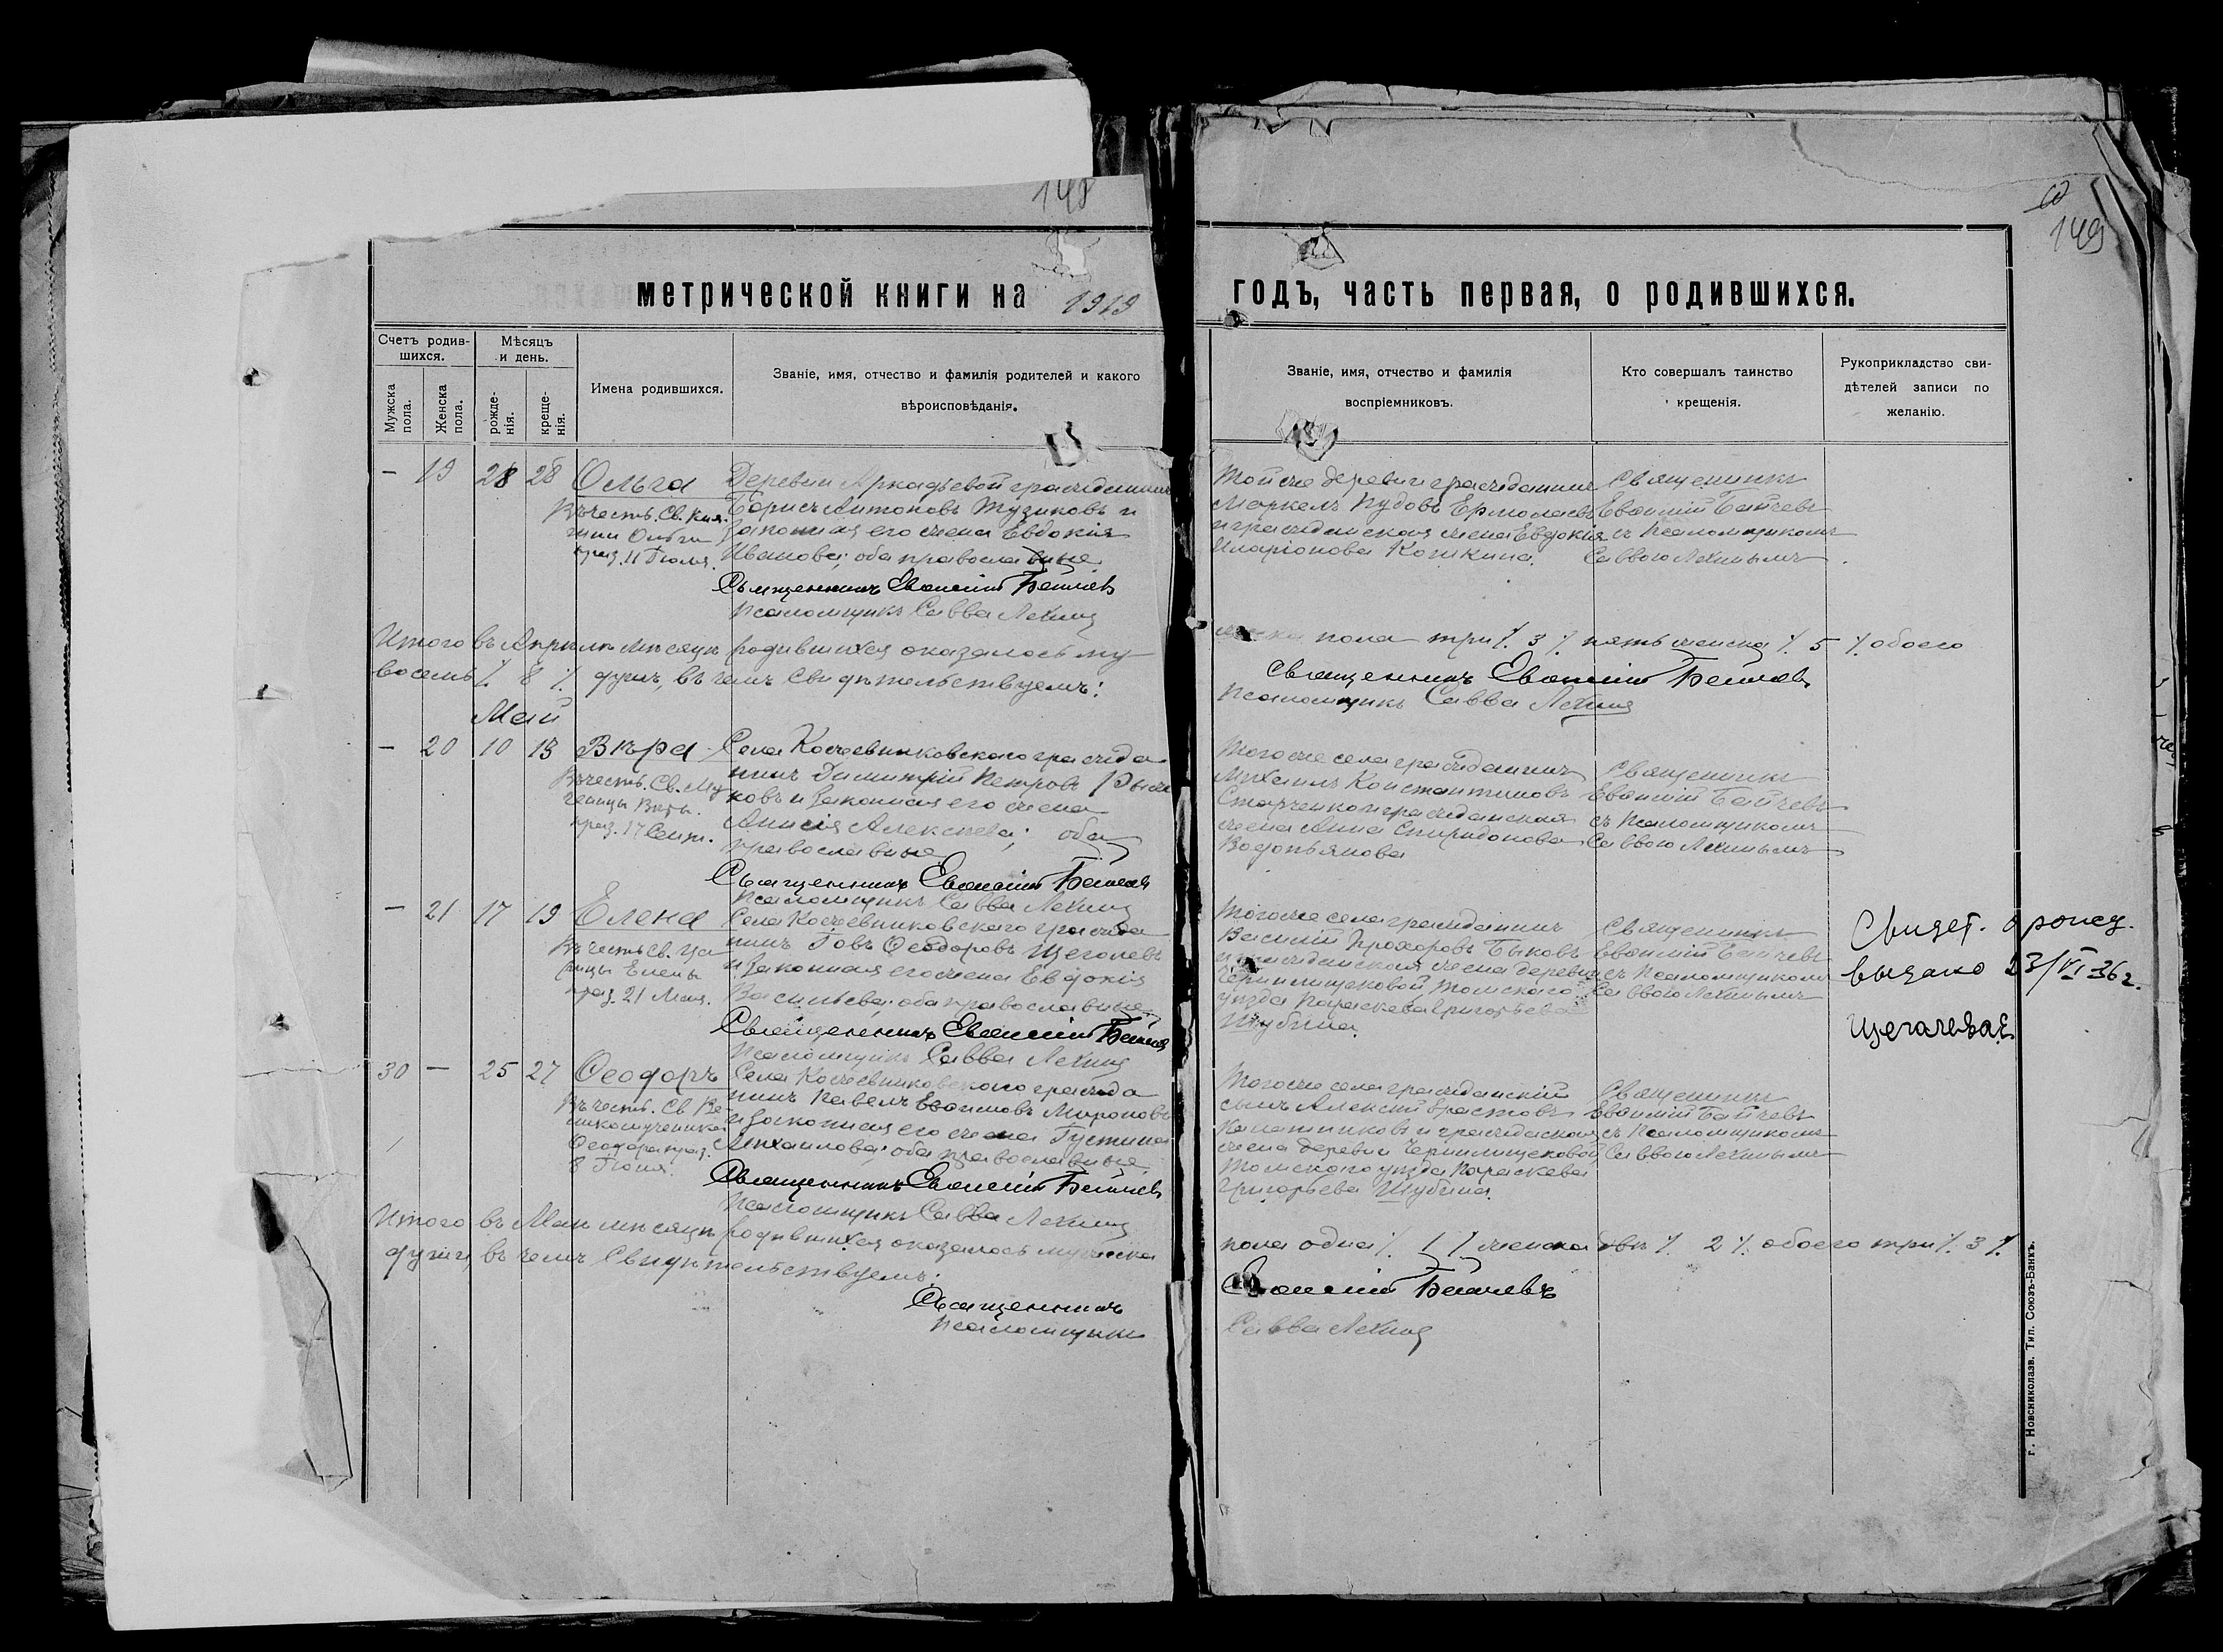 148
149
метрической книги на 1919
годъ, часть первая, о родившихся.
Счетъ родив-
шихся.
Мужска
пола.
Женска
пола.
Мѣсяцъ
и день.
рожде-
нія.
креще-
нія.
Имена родившихся.
Званіе, имя, отчество и фамилія родителей и какого
вѣроисповѣданія.
Званіе, имя, отчество и фамилія
воспріемниковъ.
Кто совершалъ таинство
крещенія.
Рукоприкладство сви-
дѣтелей записи по
желанію.
— 19 28 28 Ольга
Въ честь Св. Кня-
гини Ольги
праз. 11 Іюля.
Деревни Аркадьевой гражданинъ
Борисъ Антоновъ Тузиковъ и
законная его жена Евдокія
Иванова; оба православные.
Священникъ
Псаломщикъ Савва Лехинъ
Той же деревни гражданинъ
Маркелъ Пудовъ Ермолаевъ
и гражданская жена Евдокія
Иларіонова Кошкина.
Священникъ
Евѳимій
съ Псаломщикомъ
Саввою Лехинымъ
Итого въ Апрѣлѣ мѣсяцѣ родившихся оказалось му-
жска пола три % 3 % пять женска % 5 % обоего
восемь % 8 % душъ, въ чемъ свидѣтельствуемъ:
Священникъ
Псаломщикъ Савва Лехинъ
Май
— 20 10 13 Вѣра
Въ честь Св. Му-
ченицы Вѣры.
праз. 17 Сент.
Села Кожевниковского гражда-
нинъ Димитрій Петровъ
и законная его жена
Анисія Алексѣева; оба
православные
Священникъ
Псаломщикъ Савва Лехинъ
Того же села гражданинъ
Михаилъ Константиновъ
Старченко и гражданская
жена Анна Спиридонова
Водопьянова
Священникъ
Евѳимій
съ Псаломщикомъ
Саввою Лехинымъ
— 21 17 19 Елена
Въ честь Св. Ца-
рицы Елены
праз. 21 Мая.
Села Кожевниковского гражда-
нинъ Іовъ Ѳеодоровъ Щеголевъ
и законная его жена Евдокія
Васильева; оба православные.
Священникъ
Псаломщикъ Савва Лехинъ
Того же села гражданинъ
Василій Прохоровъ Быковъ
и гражданская жена деревни
Чернилищековой Томскаго
уѣзда Параскева Григорьева
Шубина.
Священникъ
Евѳимій
съ Псаломщикомъ
Саввою Лехинымъ
Свидет. о рожд.
выдано 23/VI 36 г.
30 — 25 27 Ѳеодоръ
Въ честь Св. Ве-
ликомученика
Ѳеодора праз.
8 Іюня.
Села Кожевниковского гражда-
нинъ Павелъ Евѳимовъ Мироновъ
и законная его жена Іустина
Михаилова; оба православные.
Священникъ
Псаломщикъ Савва Лехинъ
Того же села гражданскій
сынъ Алексѣй Ерастовъ
Калашниковъ и гражданская
жена деревни Чернилищековой
Томскаго уѣзда Параскева
Григорьева Шубина.
Священникъ
Евѳимій
съ Псаломщикомъ
Саввою Лехинымъ
Итого въ Маѣ мѣсяцѣ родившихся оказалось мужска
пола одна % 1 % женска двѣ % 2 % обоего три % 3 %
души, въ чемъ свидѣтельствуемъ:
Священникъ
Псаломщикъ
Савва Лехинъ
г. Новониколаев. Тип. Союзъ-Банкъ.